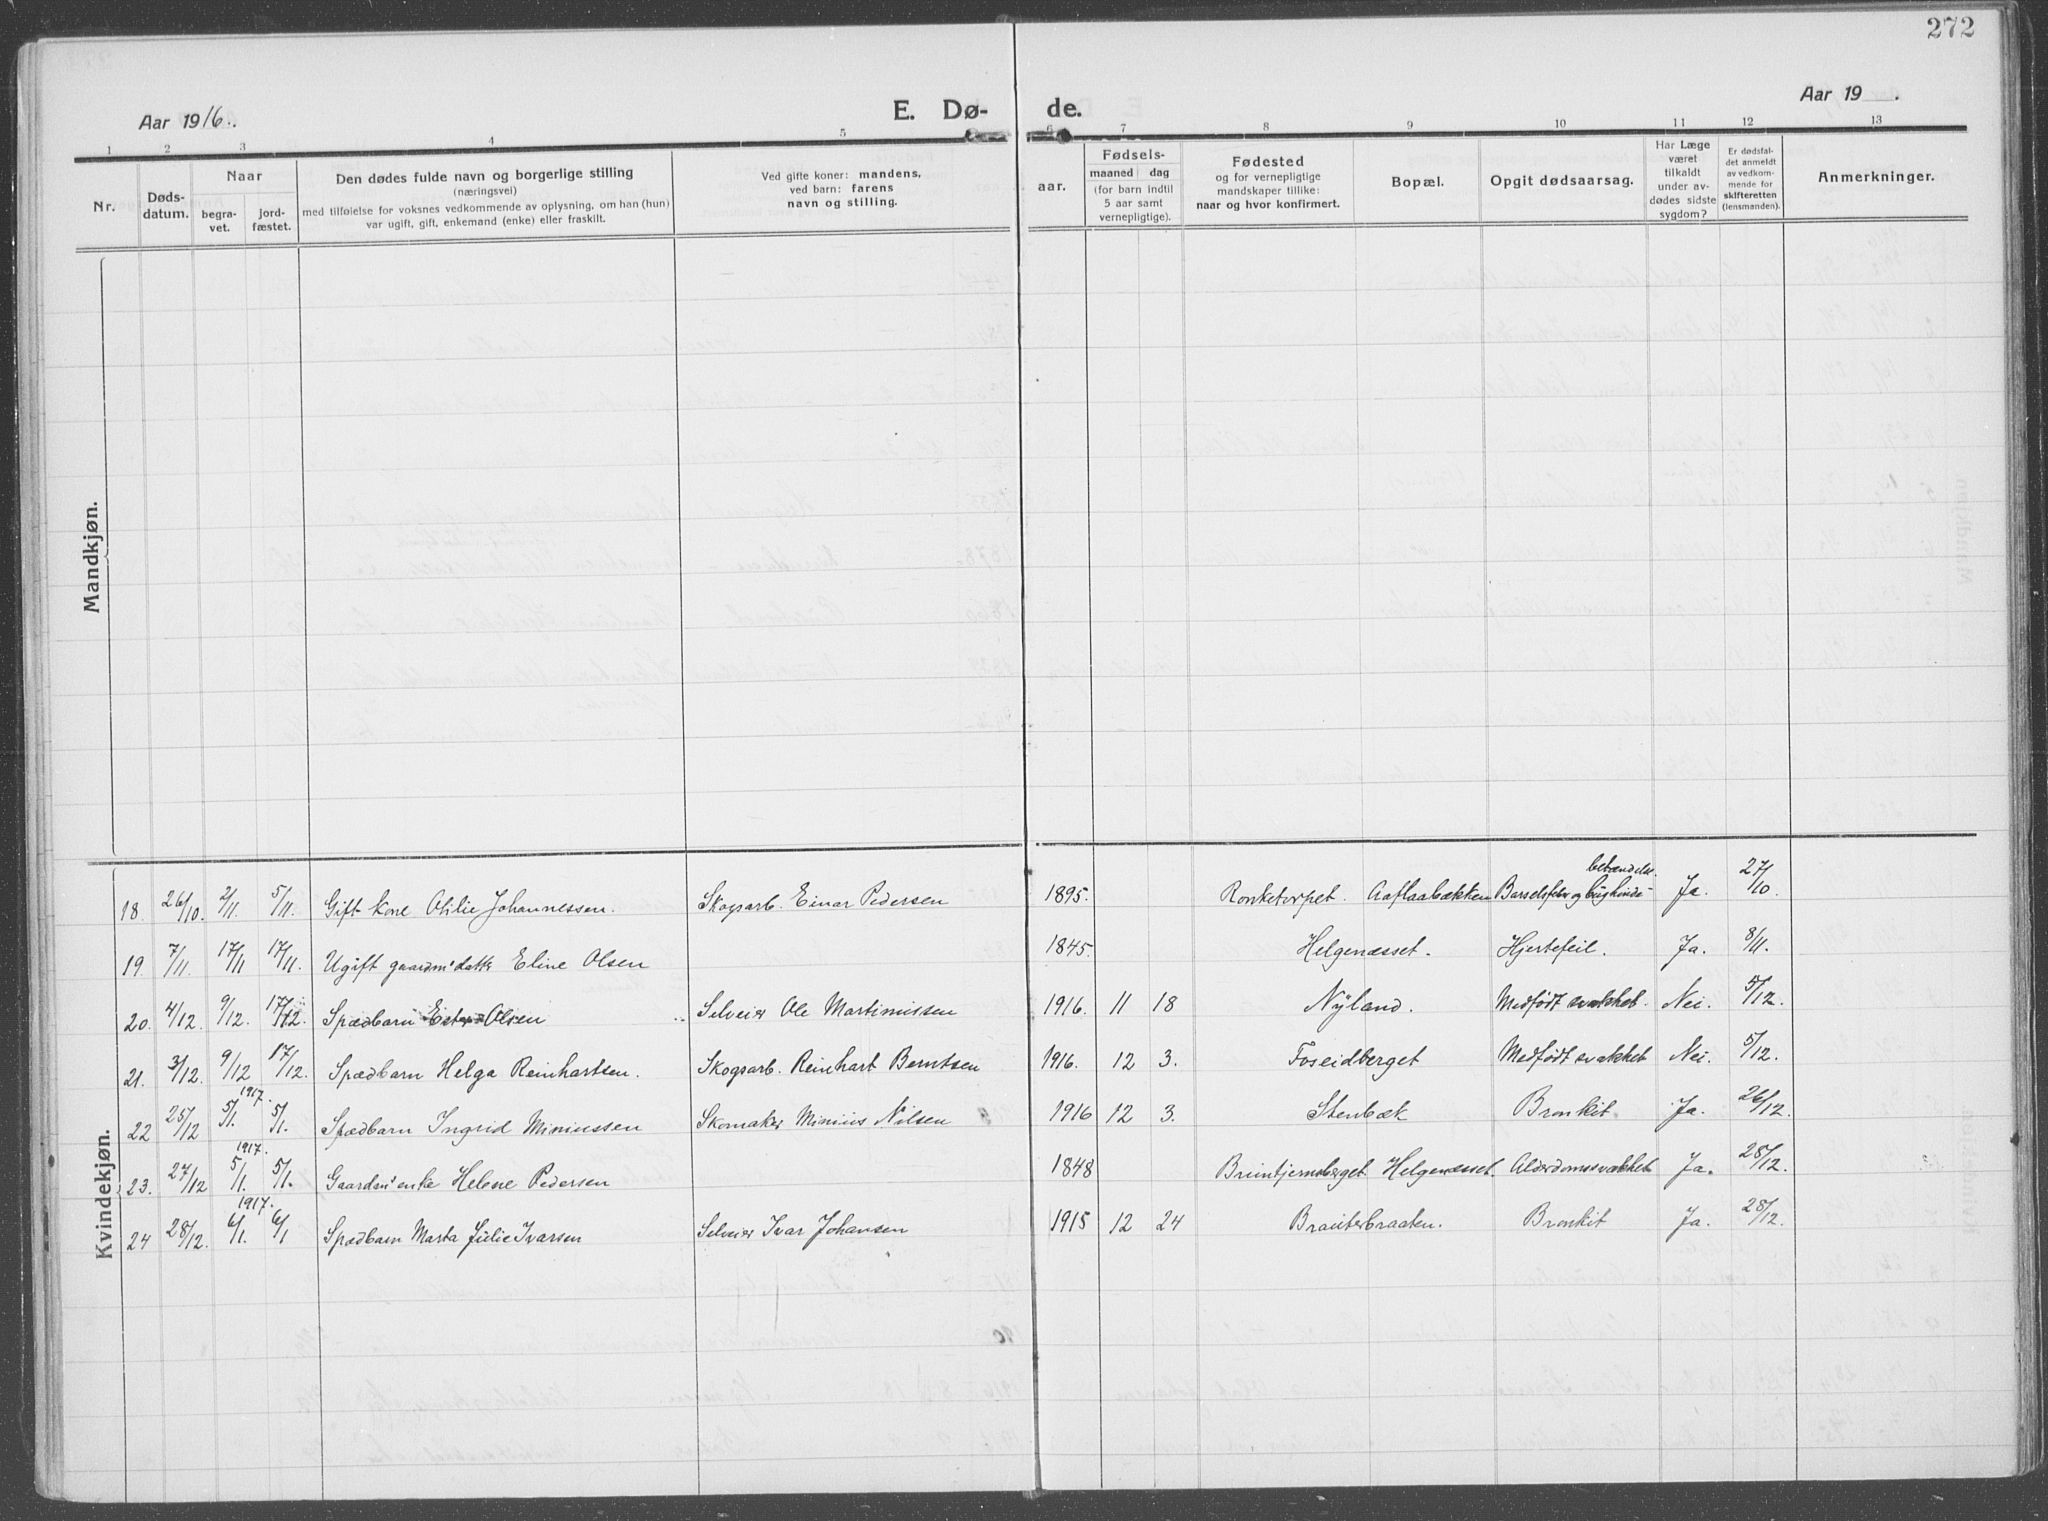 272
Aar 1916. E. Dø- de. Aar 19 .
1 2 3 4 5 6 7 8 9 10 11 12 13
Nr.
Døds-
datum.
Naar
begra-
vet.
jord-
fæstet.
Den dødes fulde navn og borgerlige stilling
(næringsvei)
med tilføielse for voksnes vedkommende av oplysning, om han (hun)
var ugift, gift, enkemand (enke) eller fraskilt.
Ved gifte koner: mandens,
ved barn: farens
navn og stilling.
aar.
Fødsels-
maaned dag
(for barn indtil
5 aar samt
vernepligtige).
Fødested
og for vernepligtige
mandskaper tillike:
naar og hvor konfirmert.
Bopæl.
Opgit dødsaarsag.
Har Læge
været
tilkaldt
under av-
dødes sidste
sygdom?
Er dødsfal-
det anmeldt
av vedkom-
mende for
skifteretten
(lensmanden).
Anmerkninger.
Mandkjøn.
Kvindekjøn.
betændelse.
18. 26/10. 2/11. 5/11. Gift kone Otilie Johannessen. Skogsarb. Einar Pedersen 1895. Ronketorpet. Aaflaabækken Barselsfeber og bughinde- Ja. 27/10.
19. 7/11. 17/11 17/11. Ugift gaardm's datter Eline Olsen 1845. Helgenæsset. Hjertefeil. Ja. 8/11.
20. 4/12. 9/12. 17/12. Spædbarn Ester Olsen Selveier Ole Martinussen 1916. 11 18 Nyland. Medfødt svakhet. Nei. 5/12.
21. 3/12. 9/12 17/12. Spædbarn Helga Reinhartsen. Skogsarb. Reinhart Berntsen 1916. 12 3. Foseidberget Medfødt svakhet Nei. 5/12.
1917.
22 25/12 5/1. 5/1. Spædbarn Ingrid Miniussen Skomaker Minius Nilsen 1916 12 3. Stenbæk Bronkit Ja. 26/12.
1917.
23. 27/12 5/1. 5/1. Gaardm's enke Helene Pedersen 1848 Bruntjernsberget Helgenæsset. Alderdomssvakhet Ja. 28/12.
1917.
24 28/12. 6/1. 6/1 Spædbarn Marta Julie Ivarsen Selveier Ivar Johansen 1915 12 24 Brauterbraaten. Bronkit Ja. 28/12.